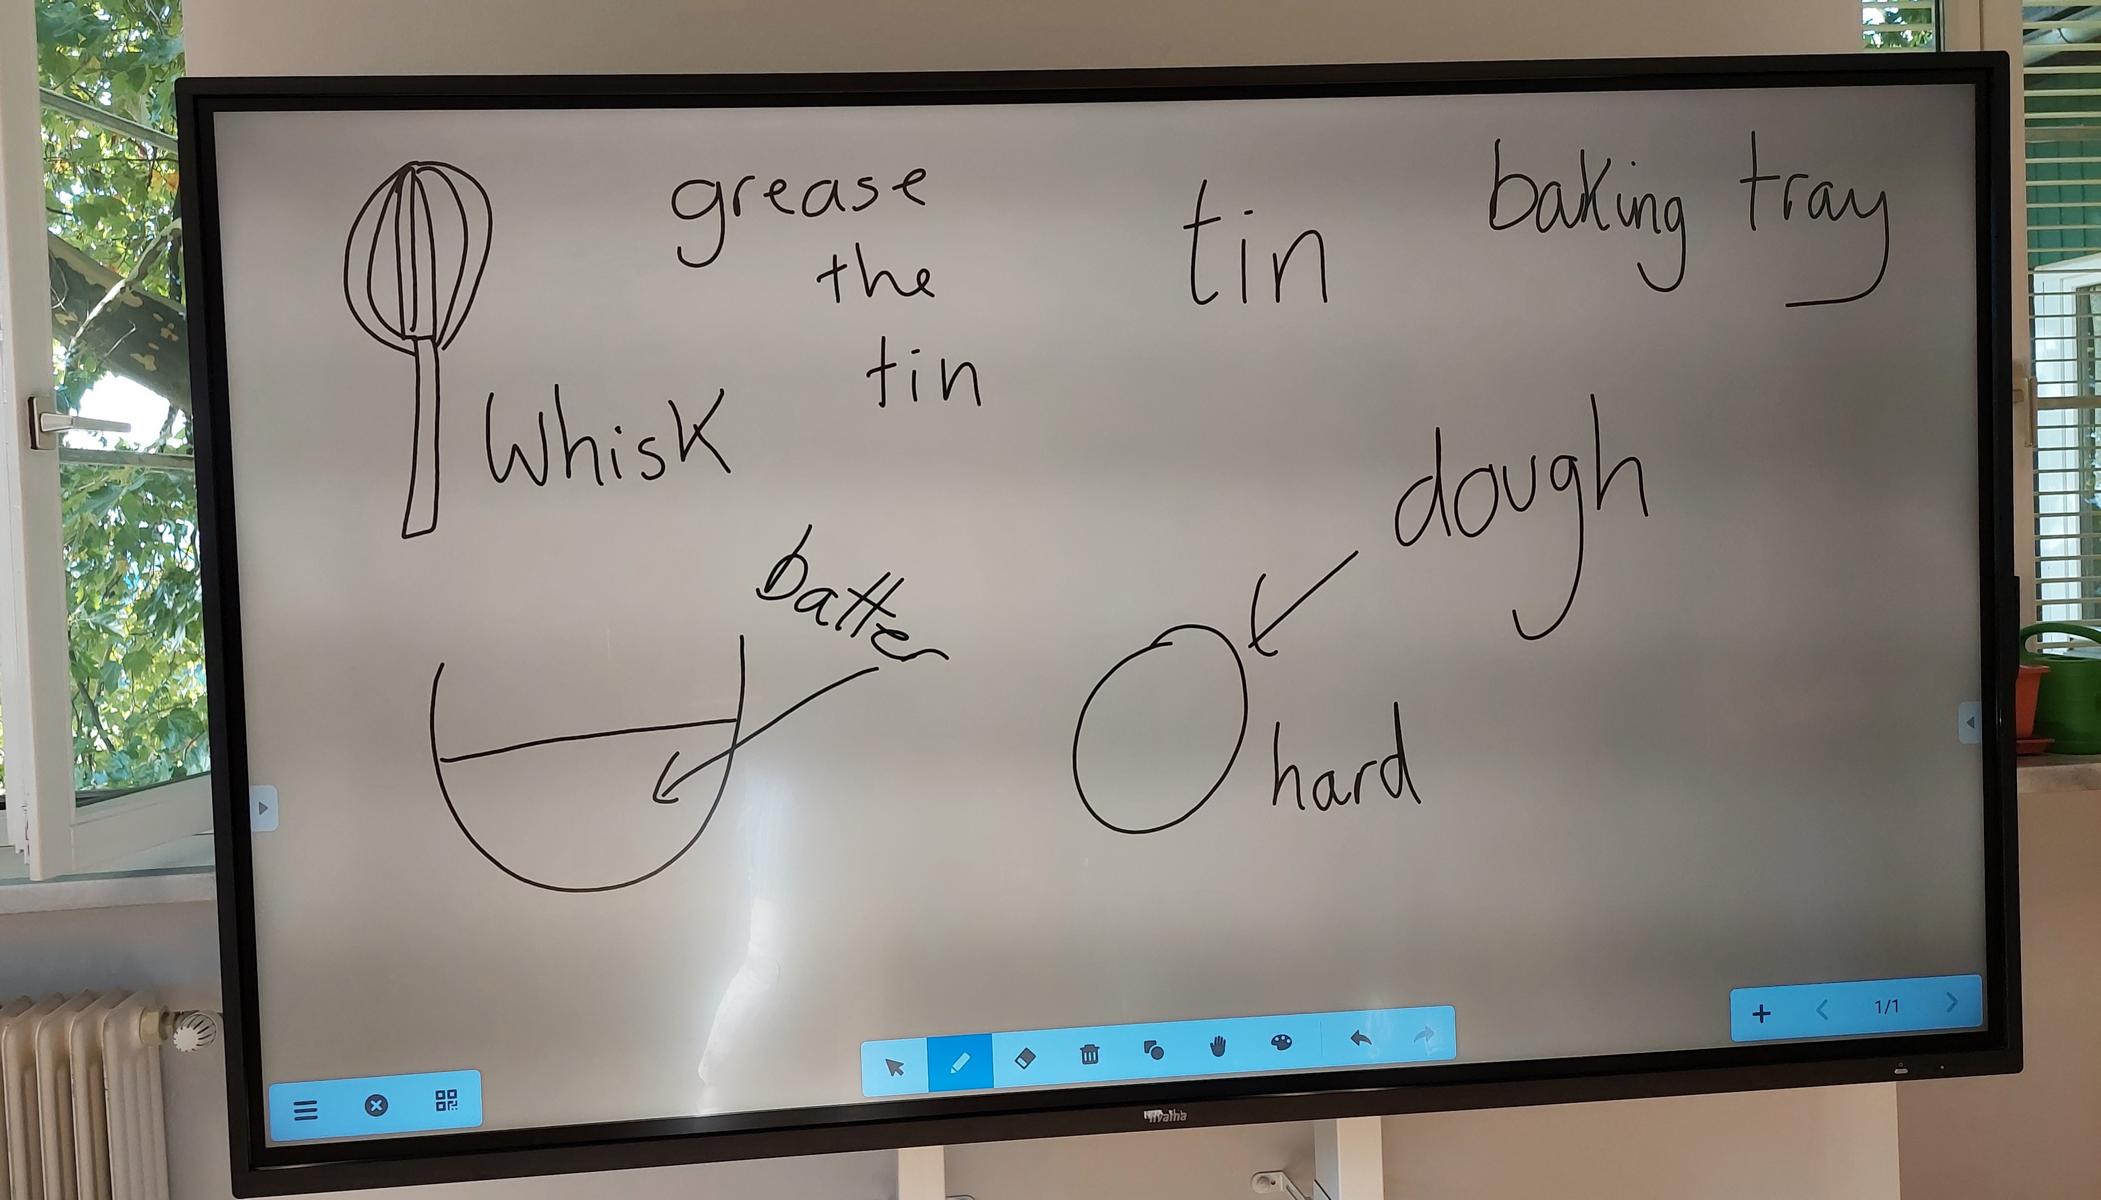 grease
the
tin
tin
baking tray
Whisk
batter
dough
hard
1/1
iiyama